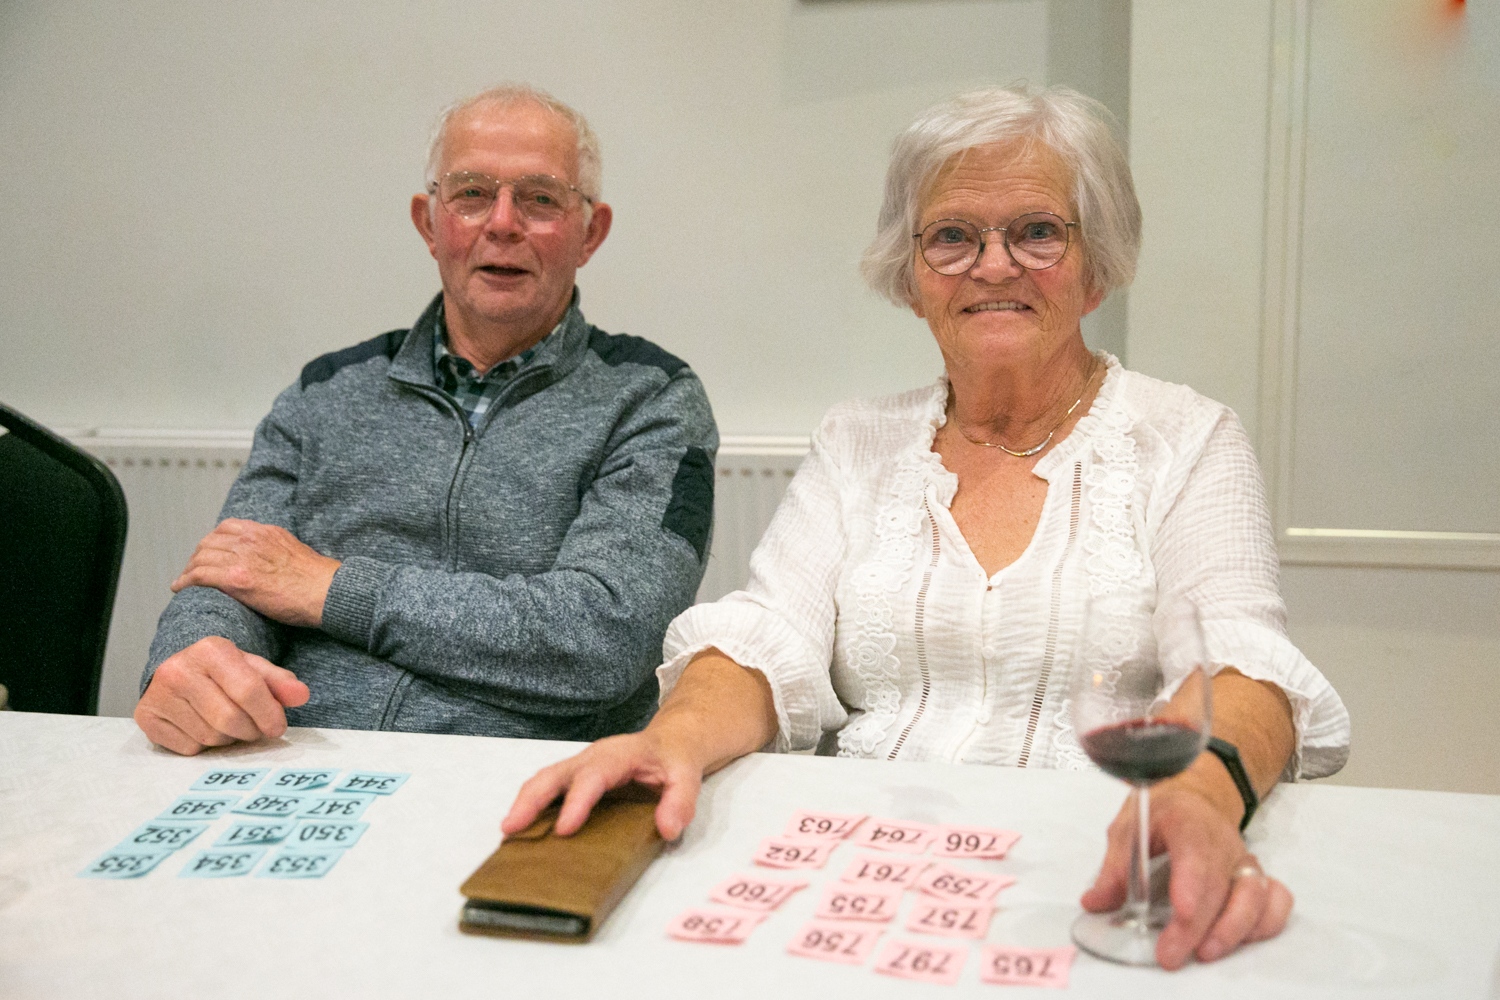 346 345 344
349 348 347
352 351 350
355 354 353
763 764 766
762 761 759
760 755 757
758 756 797 765